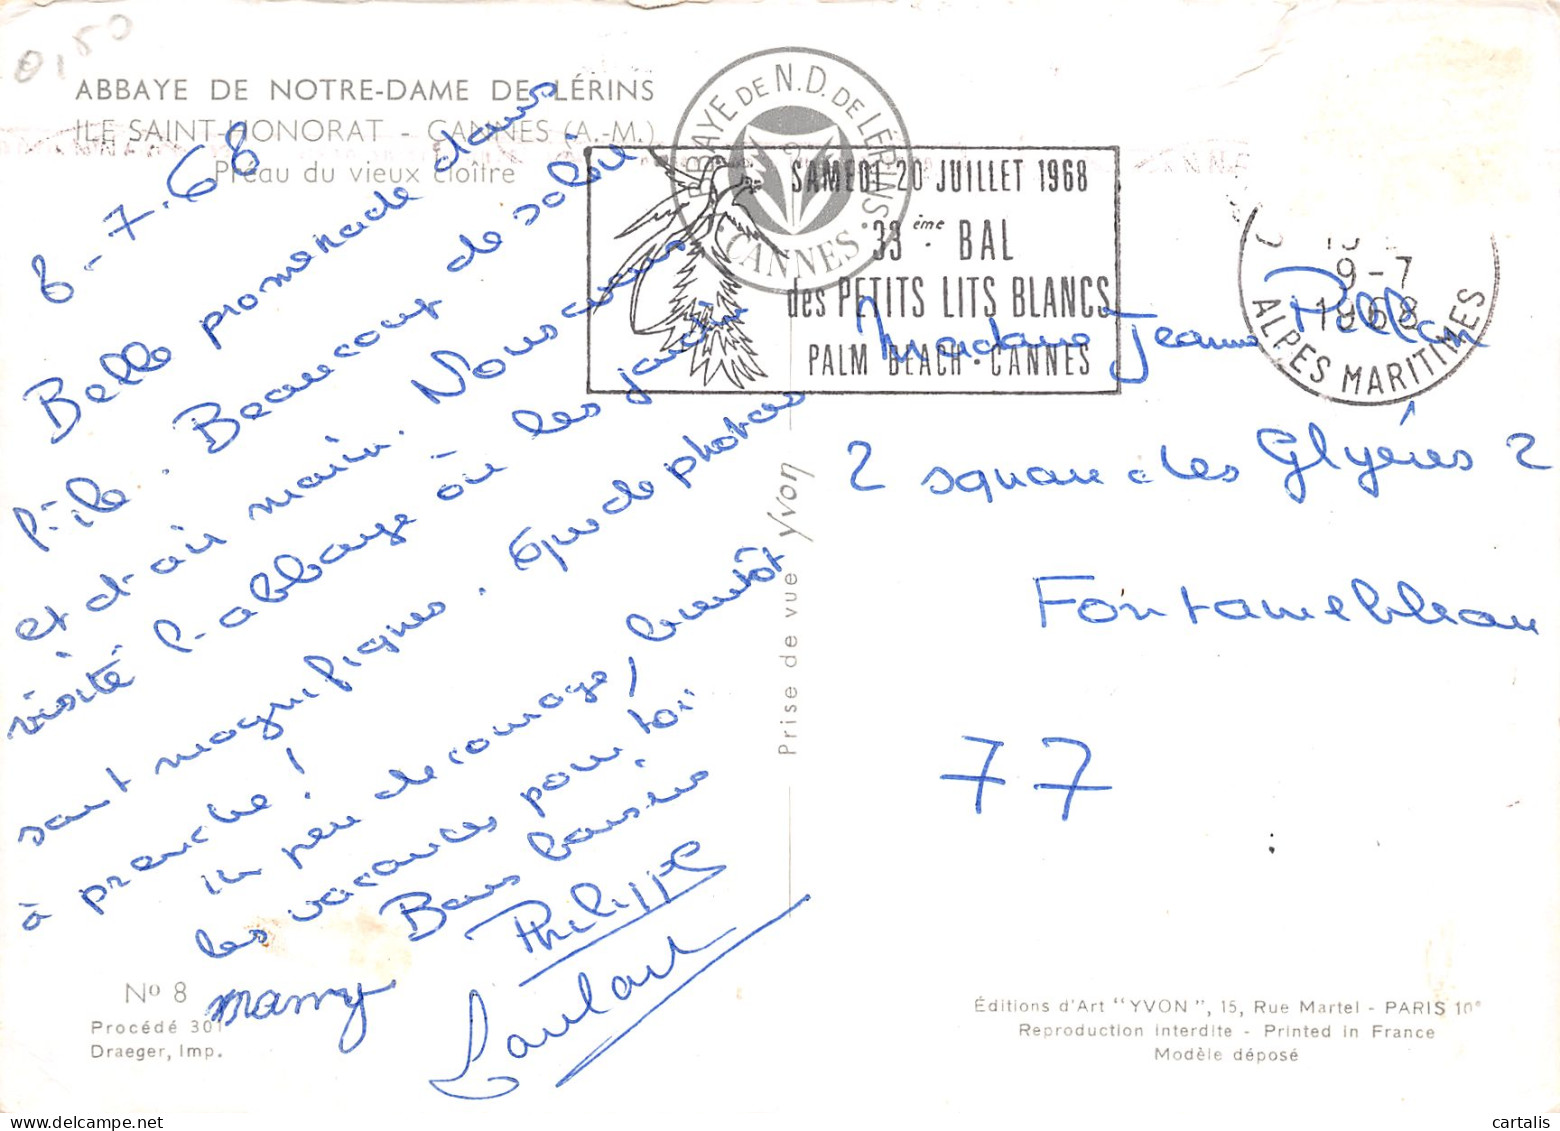 0,50
ABBAYE DE NOTRE-DAME DE LÉRINS
ILE SAINT-HONORAT - CANNES (A.-M.)
Préau du vieux cloître
8-7-68
Belle promenade dans
l'île. Beaucoup de soleil
et d'air marin. Nous avons
visité l'abbaye où les jardins
sont magnifiques. Que de photos
à prendre!
un peu de courage, bientôt
les vacances pour toi
Bons baisers
mamy
Philippe
ABBAYE DE N.D. DE LÉRINS
CANNES
SAMEDI 20 JUILLET 1968
33ème BAL
des PETITS LITS BLANCS
PALM BEACH - CANNES
9-7
1968
ALPES MARITIMES
Madame Jeanne
2 square des Glyères 2
Fontainebleau
77
Prise de vue Yvon
Nº 8
Procédé 301
Draeger, Imp.
Éditions d'Art "YVON", 15, Rue Martel - PARIS 10e
Reproduction interdite - Printed in France
Modèle déposé
cartalis